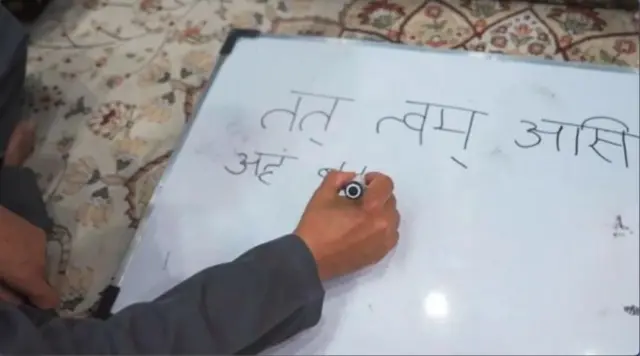 तत् त्वम् आसि
अहं